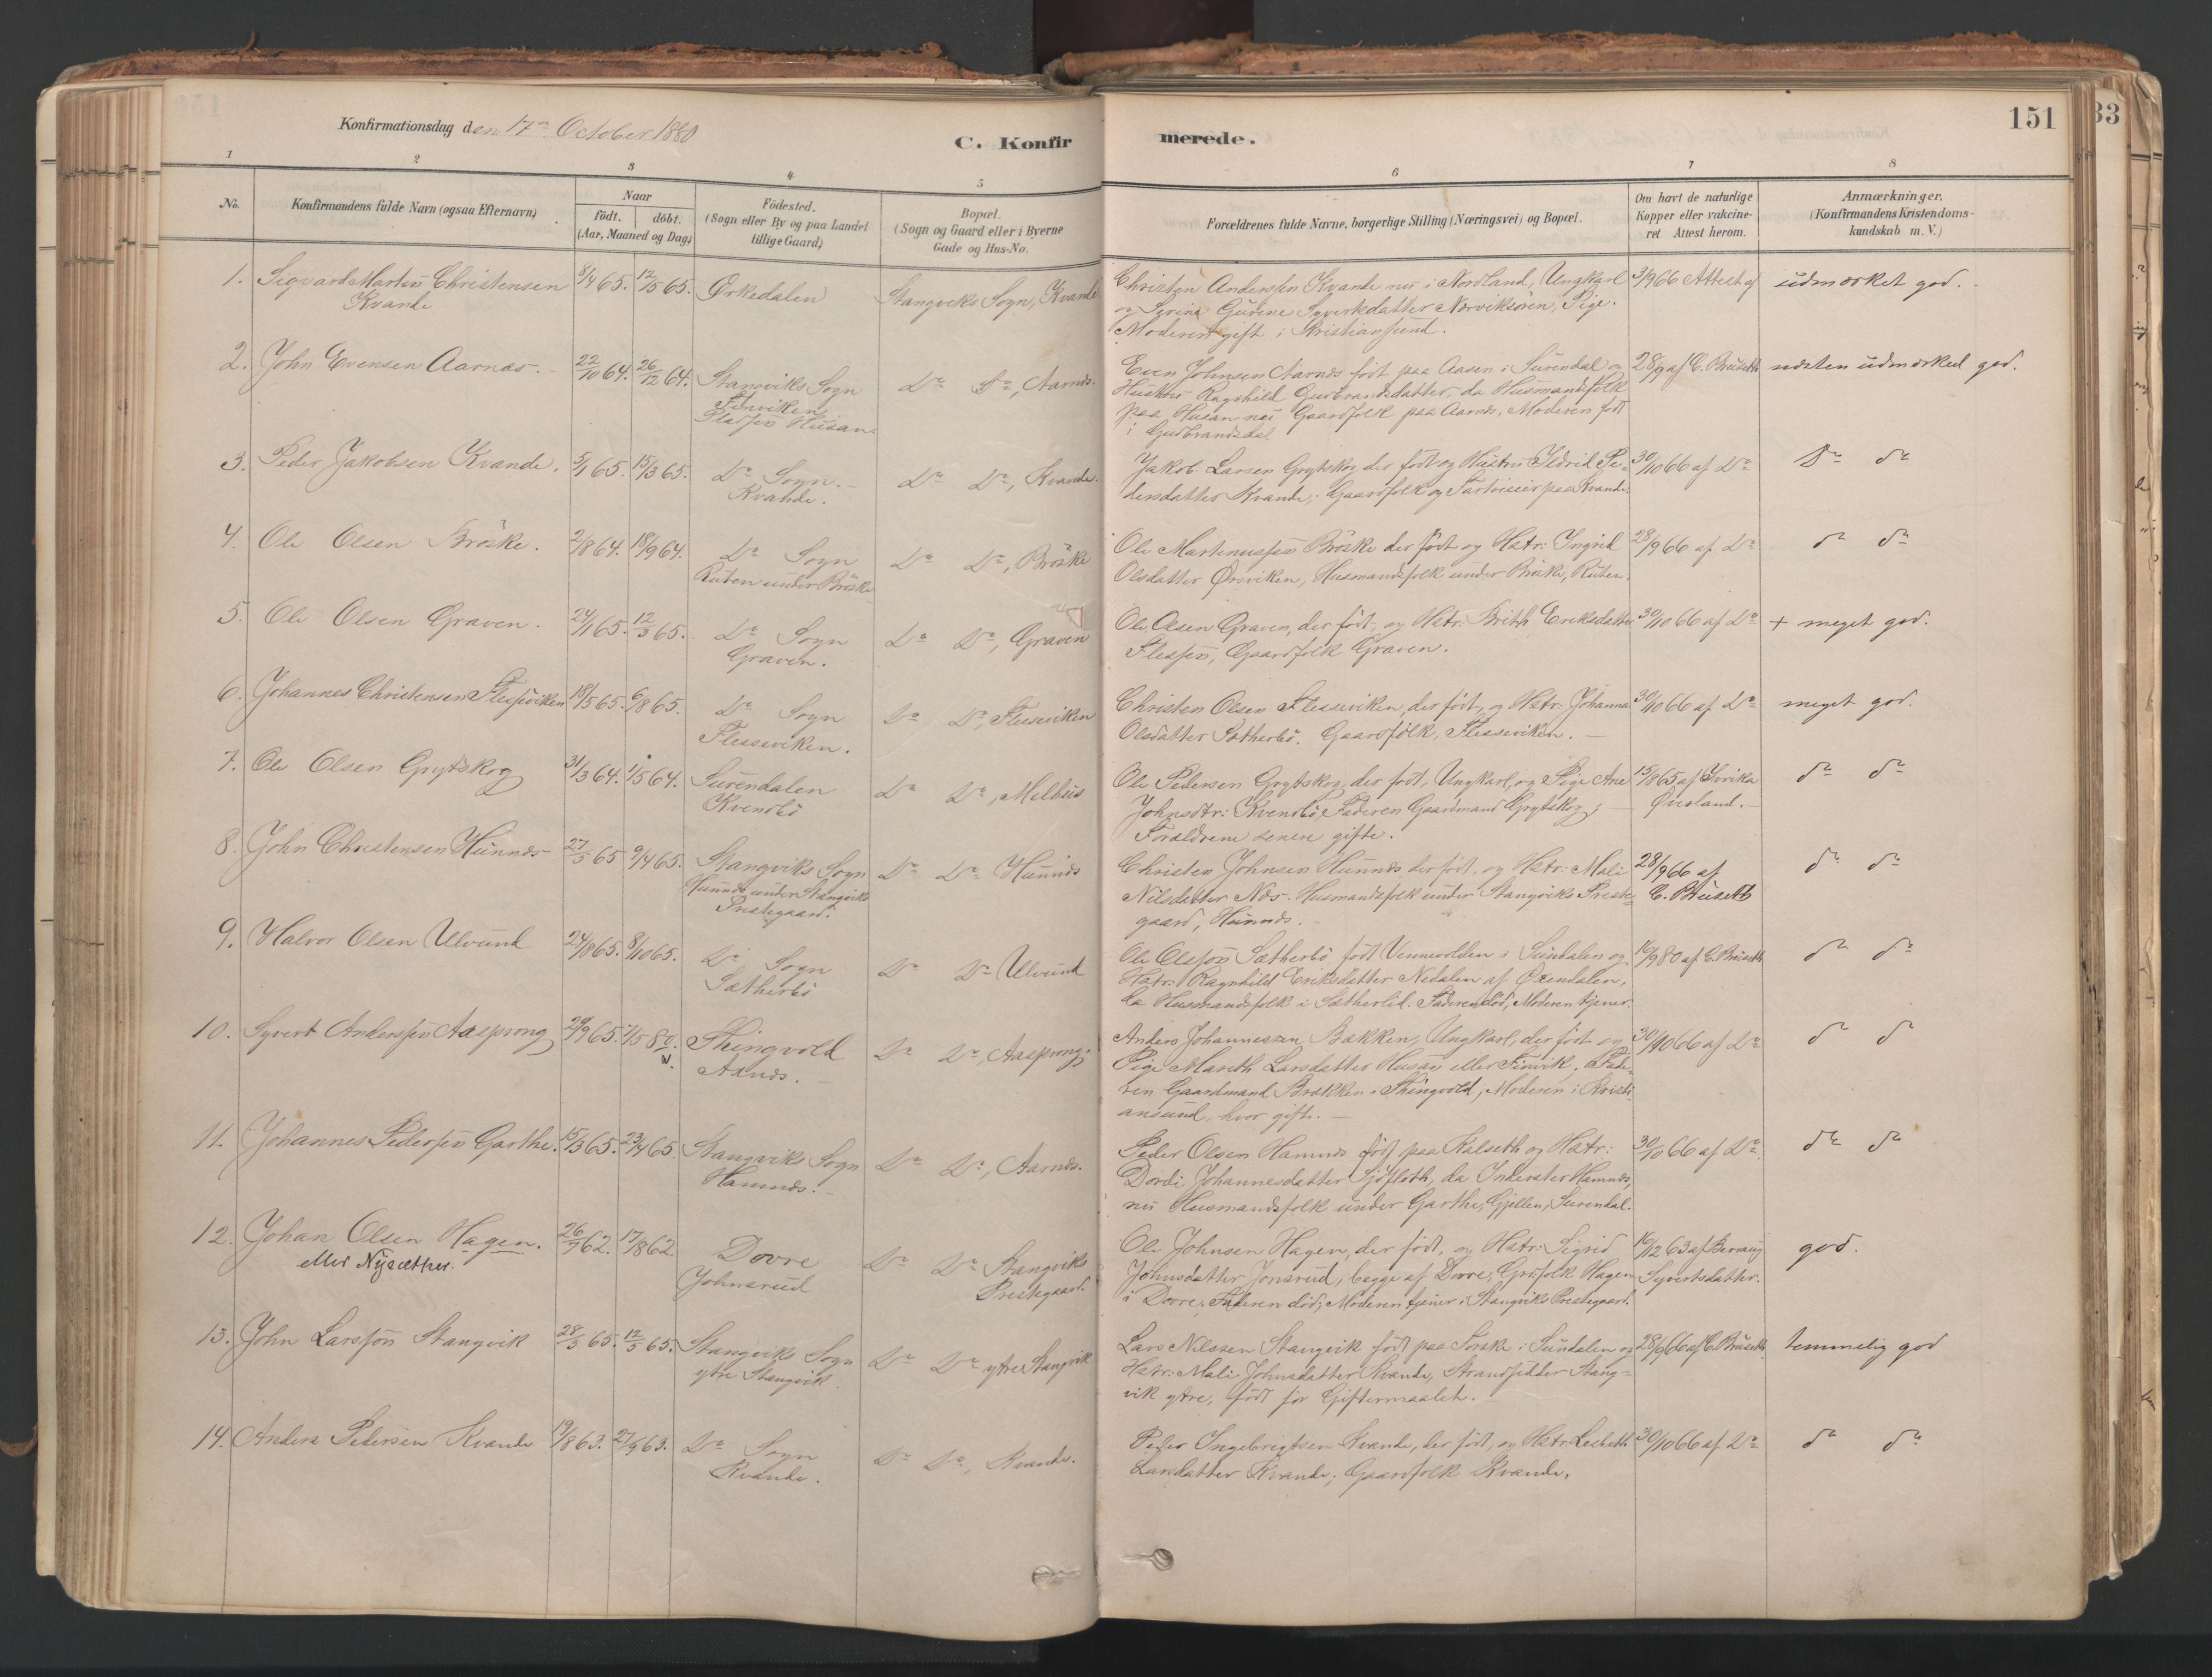 Konfirmationsdag den 17de October 1880
C. Konfirmerede.
151
33
1 2 3 4 5 6 7 8
No.
Konfirmandens fulde Navn (ogsaa Efternavn)
Naar
födt. döbt.
(Aar, Maaned og Dag)
Födested.
(Sogn eller By og paa Landet
tillige Gaard)
Bopæl.
(Sogn og Gaard eller i Byerne
Gade og Hus-No.
Forældrenes fulde Navne, borgerlige Stilling (Næringsvei) og Bopæl.
Om havt de naturlige
Kopper eller vakcine-
ret Attest herom.
Anmærkninger.
(Konfirmandens Kristendoms-
kundskab m. V.)
1. Sigvard Martin Christensen 8/4 65. 12/5 65. Ørkedalen Stangviks Sogn, Kvande
Kvande
Christen Andersen Kvande nu i Nordland, Ungkarl 3/9 66 Attest af udmærket god.
og Serine Gurine Syvertsdatter Nærviksören, Pige.
Moderen gift i Kristiansund.
2. John Evensen Aarnæs. 22/10 64. 26/12 64. Stangviks Sogn Do Do, Aarnæs.
Pladsen Husan.
Even Johnsen Aarnæs födt paa Aasen i Surendal og 28/9 af C. Brüseth næsten udmærked god.
Hustru Ragnhild Gudbrandsdatter, da Husmandsfolk
paa Husan nu Gaardfolk paa Aarnæs, Moderen födt
i Gudbrandsdal
3. Peder Jakobsen Kvande. 5/1 65. 15/3 65. Do Sogn. Do Do, Kvande.
Kvande.
Jakob Larsen Grytskog der födt og Hustru Ildrid Pe- 30/10 66 af Do Do do
dersdatter Kvande, Gaardfolk og paa Kvande.
4. Ole Olsen Bröske. 2/8 64. 18/9 64. Do Sogn Do Do, Bröske
Ruten under Bröske
Ole Martinussen Bröske der födt og Hstr: Ingrid 28/9 66 af Do do do
Olsdatter Ørsviken, Husmandsfolk under Bröske, Ruten.
5. Ole Olsen Graven. 24/1 65. 12/3 65. Do Sogn Do Do, Graven
Graven.
Ole Olsen Graven, der födt, og Hstr. Brith Eriksdatter 30/10 66 af Do + meget god.
Flessen, Gaardfolk Graven.
6. Johannes Christensen Flesseviken 18/5 65. 6/8 65. Do Sogn Do Do, Flesseviken
Flesseviken.
Christen Olsen Flesseviken, der födt, og Hstr: Johanna 30/10 66 af Do meget god.
Olsdatter Sætherbö. Gaardfolk, Flesseviken.
7. Ole Olsen Grytskog 31/3 64. 1/5 64. Surendalen Do Do, Melhus
Kvendbö
Ole Pedersen Grytskog, der födt, Ungkarl, og Pige Ane 15/8 65 af do do
Johnsdtr: Kvendbö, Faderen Gaardmand Grytskog; Øvrland.
Forældrene senere gifte.
8. John Christensen Hunnæs 27/5 65 9/4 65. Stangviks Sogn Do Do Hunnæs
Hunnæs under Stangviks
Prestegaard.
Christen Johnsen Hunnæs, der födt, og Hstr: Mali 28/9 66 af do do
Nilsdatter Næs. Husmandsfolk under Stangviks Preste- C. Brüseth
gaard, Hunnæs.
9. Halvor Olsen Ulvund 24/8 65. 8/10 65. Do Sogn Do Do Ulvund
Sætherbö
Ole Olsson Sætherbö födt Vennevolden i Sundalen og 16/9 80 af C. Brüseth do do
Hstr: Ragnhild Eriksdatter Nedalen af Øxendalen,
da Husmandsfolk i Sætherlid. Faderen död, Moderen tjener.
10. Syvert Anderssen Aasprong 29/9 65. 7/5 80. Thingvold Do Do, Aasprong.
Aknæs.
Anders Johannessen Bakken, Ungkarl, der födt og 30/10 66 af Do do do
Pige Mareth Larsdatter Husan eller Finvik. Fade-
ren Gaardmand Brækken i Thingvold, Moderen i Kristi-
ansund, hvor gift.
11. Johannes Pederssen Garthe. 15/3 65. 23/4 65. Stangviks Sogn Do Do, Aarnæs.
Hamnæs.
Peder Olsen Hamnæs födt paa Kalseth og Hstr: 30/10 66 af Do. do do
Dordi Johannesdatter Sjöfloth, da Inderster Hamnæs,
nu Husmandsfolk under Garthe, Gjellen, Surendal.
12. Johan Olsen Hagen. 26/7 62. 17/8 62. Dovre Do Do Stangviks
eller Nysæther. Johnsrud Prestegaard.
Ole Johnsen Hagen, der födt, og Hstr: Sigrid 16/12 63 af god.
Johnsdatter Jonsrud, begge af Dovre, Grdfolk Hagen Syvertsdatter.
i Dovre. Faderen död, Moderen tjener i Stangviks Prestegaard.
13. John Larsson Stangvik 28/3 65. 12/5 65. Stangviks Sogn Do Do ytre Stangvik
ytre Stangvik
Lars Nilssen Stangvik födt paa Forske i Sundalen og 28/9 66 af C. Brüseth. temmelig god
Hstr: Mali Johnsdatter Kvande, Strandsidder Stang-
vik ytre, födt för Giftermaalet.
14. Anders Pedersen Kvande 19/8 63. 27/9 63. Do Sogn Do Do, Kvande.
Kvande.
Peder Ingebrigtsen Kvande, der födt, og Hstr. Lisbeth 30/10 66 af Do do do
Larsdatter Kvande; Gaardfolk Kvande.